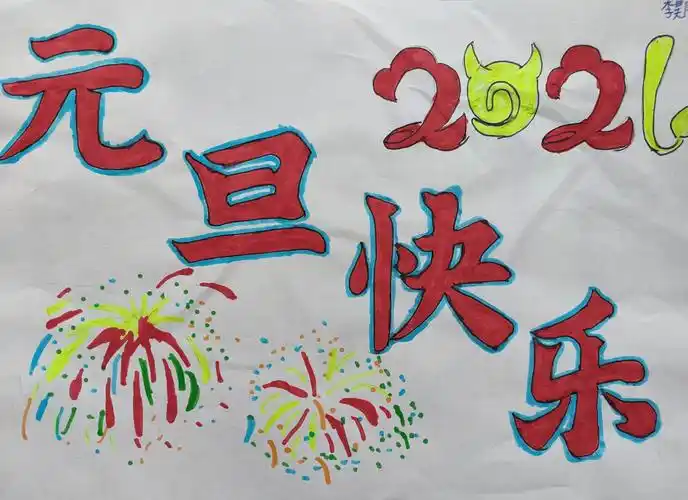 2021
元旦快乐